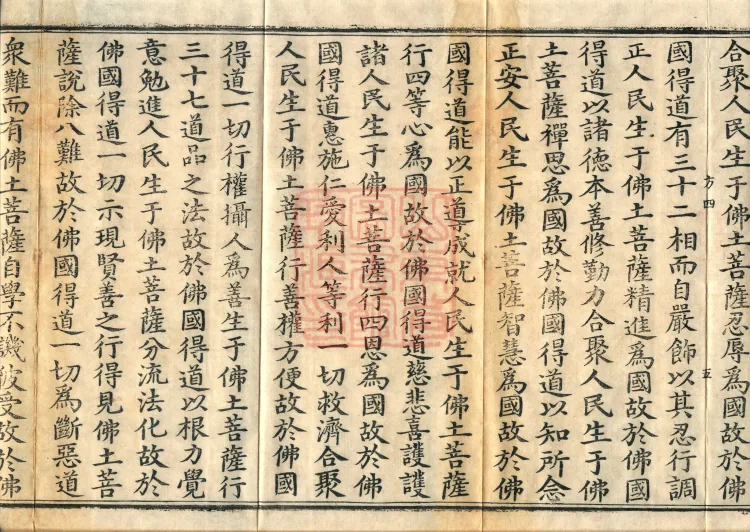 合聚人民生于佛土菩薩忍辱爲國故於佛
國得道有三十二相而自嚴飾以其忍行調
正人民生于佛土菩薩精進爲國故於佛國
得道以諸德本善修勤力合聚人民生于佛
土菩薩禪思爲國故於佛國得道以知所念
正安人民生于佛土菩薩智慧爲國故於佛
國得道能以正導成就人民生于佛土菩薩
行四等心爲國故於佛國得道慈悲喜護護
諸人民生于佛土菩薩行四恩爲國故於佛
國得道惠施仁愛利人等利一切救濟合聚
人民生于佛土菩薩行善權方便故於佛國
得道一切行權攝人爲善生于佛土菩薩行
三十七道品之法故於佛國得道以根力覺
意勉進人民生于佛土菩薩分流法化故於
佛國得道一切示現賢善之行得見佛土菩
薩說除八難故於佛國得道一切爲斷惡道
衆難而有佛土菩薩自學不譏彼受故於佛
方四
五